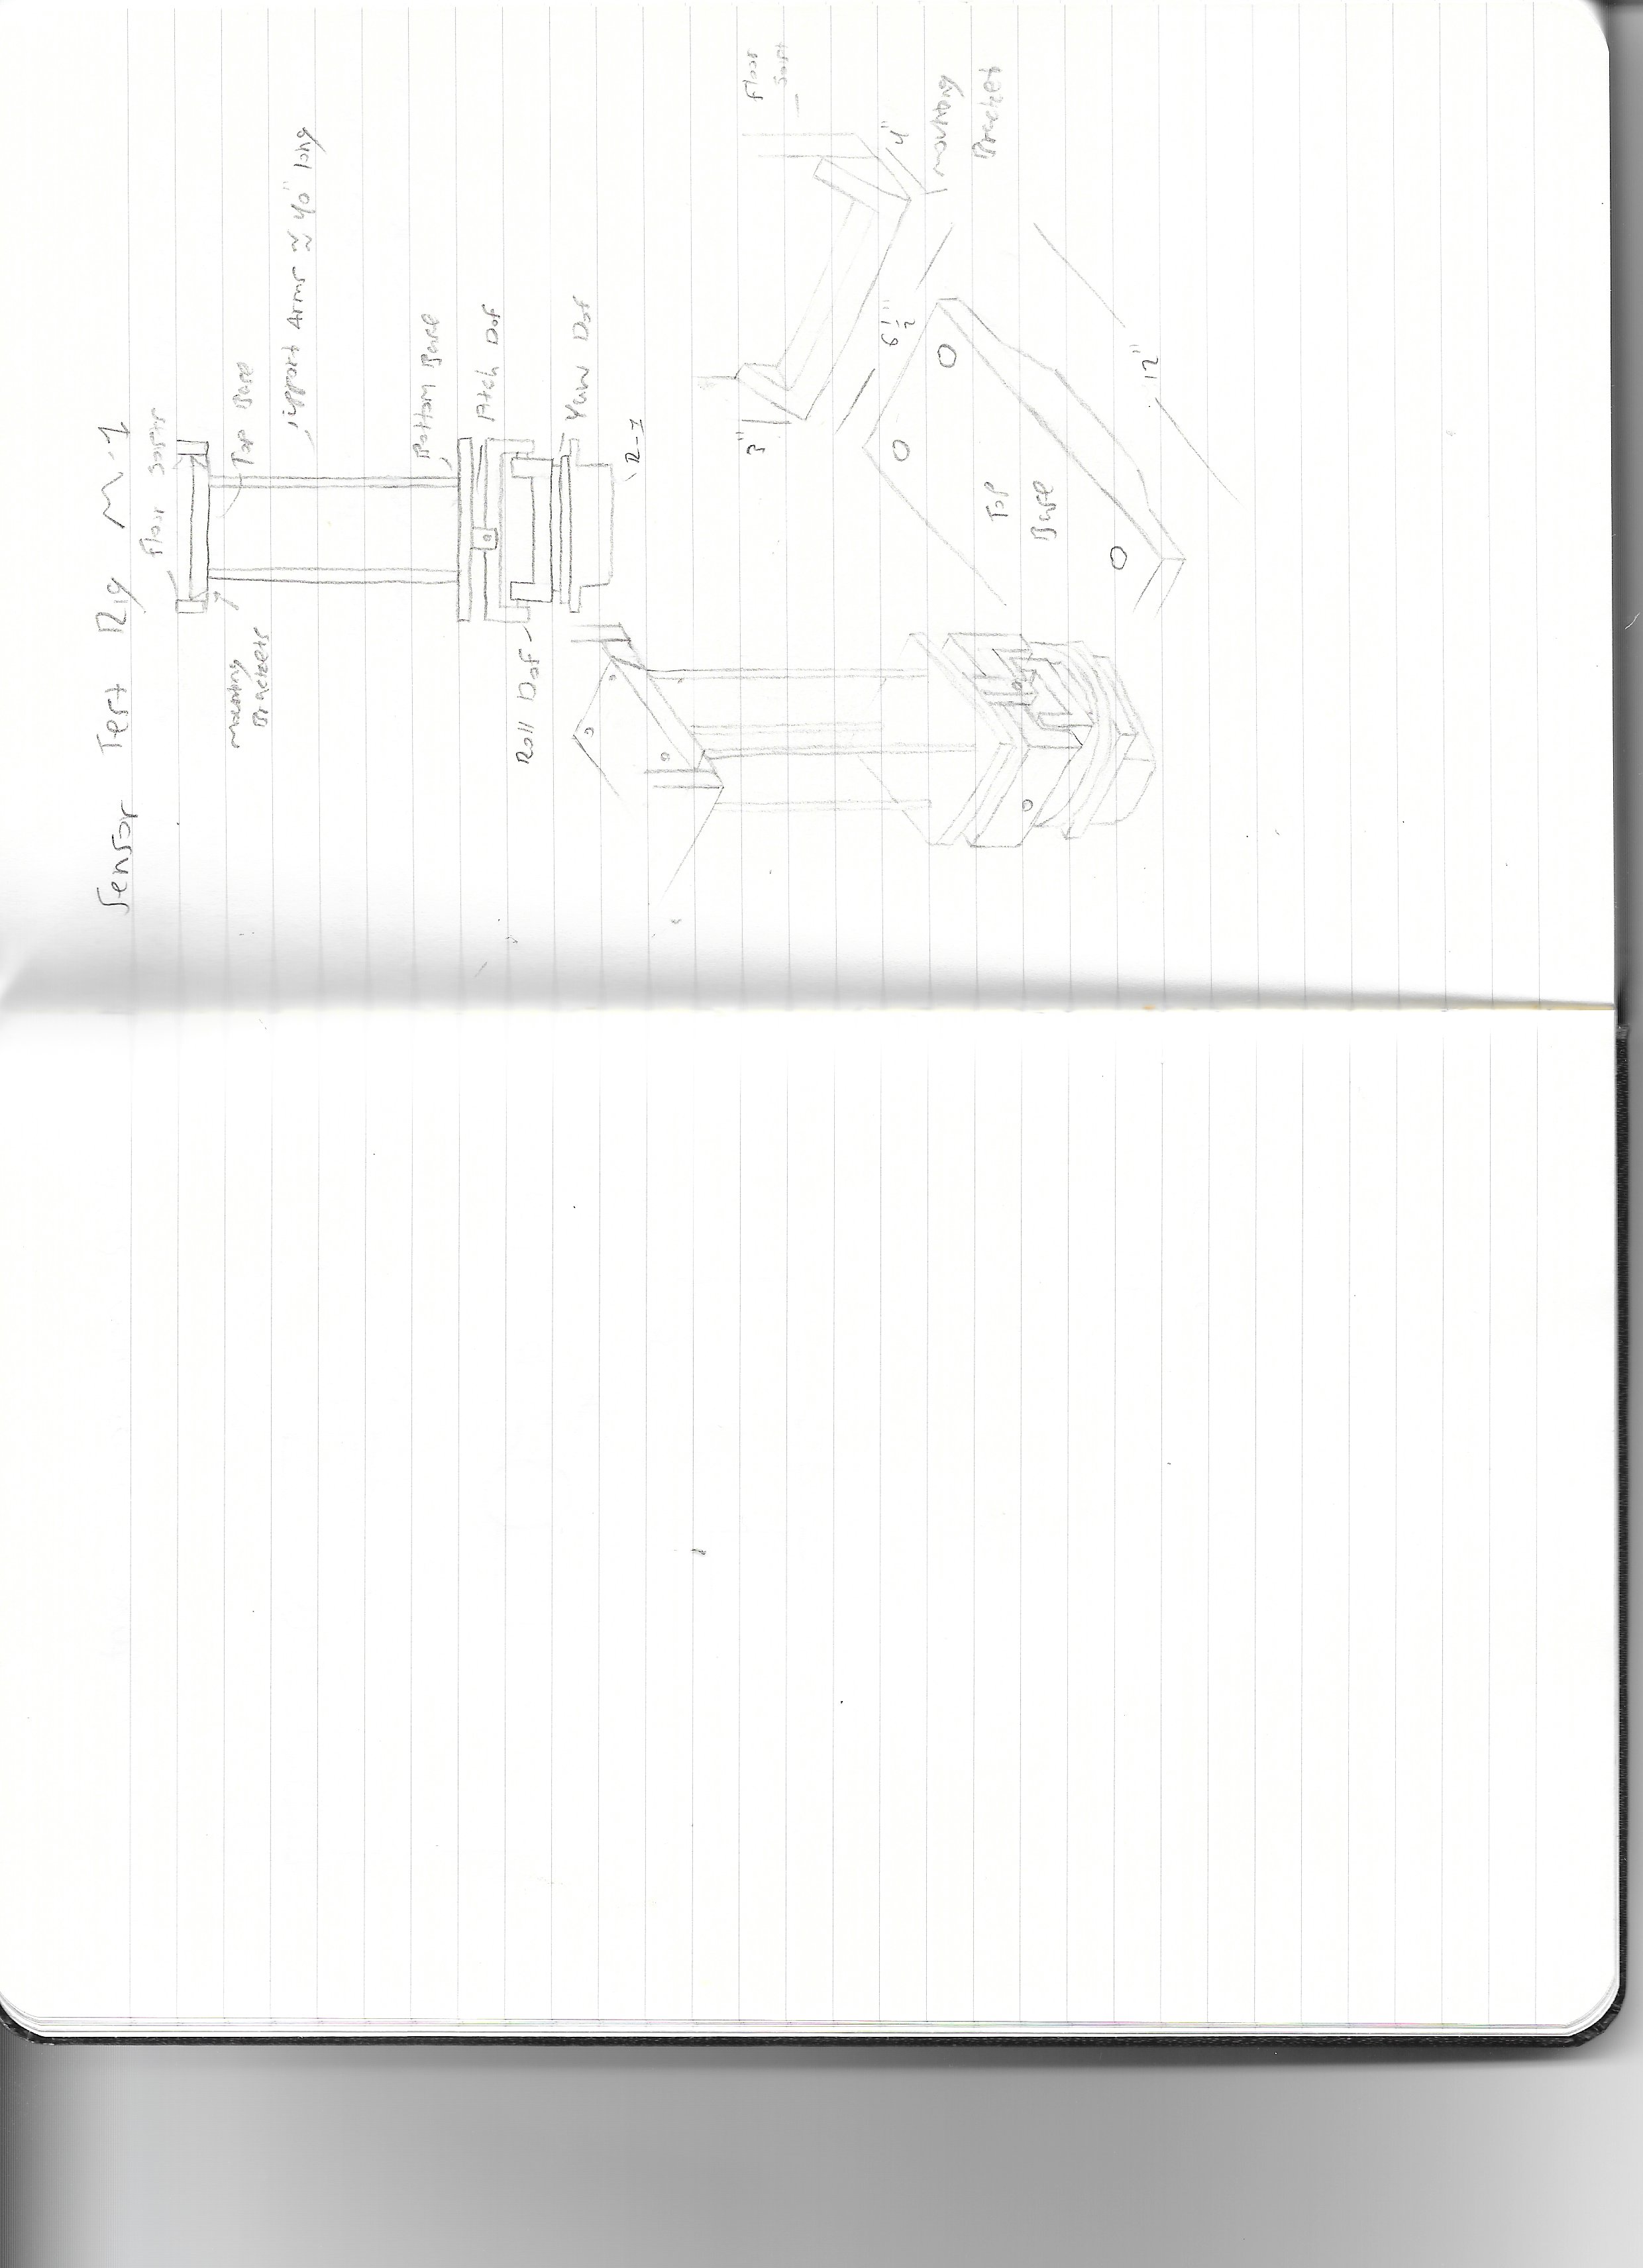 Sensor Test Rig M-1
Floor Joists
Mounting
Brackets
Top Base
Support Arms ≈ 40" long
Bottom Base
Pitch Dof
Roll Dof
Yaw Dof
R-1
3"
Floor
Joist
6 1/2"
4"
Mounting
Bracket
Top
Base
12"